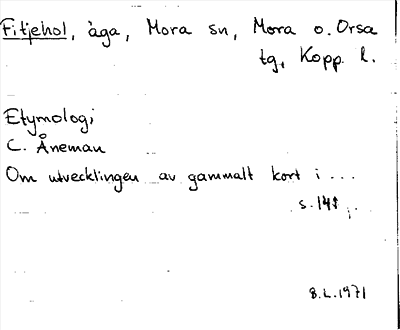 Fitjehol, äga, Mora sn, Mora o. Orsa
tg, Kopp. l.
Etymologi
C. Åneman
Om utvecklingen av gammalt kort i ...
s.
8.L.1971